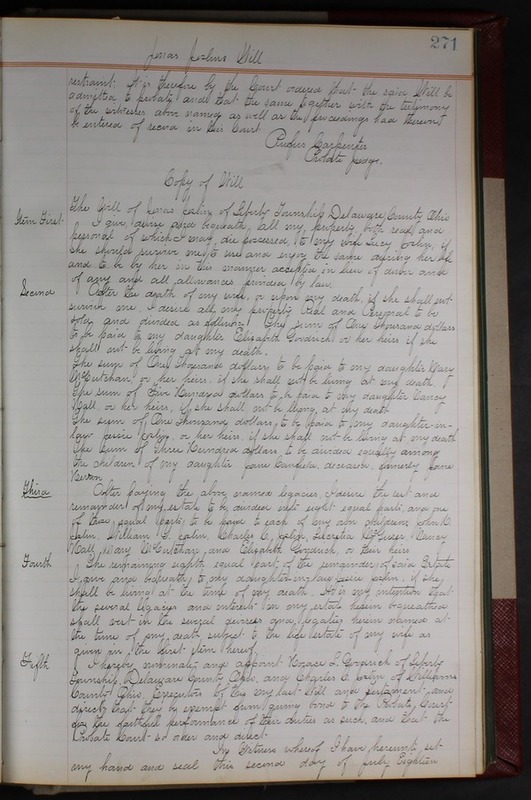 271
Jonas Joslins Will
restraint: It is therefore by the Court ordered that the said Will be
admitted to probate and that the same together with the testimony
of the witnesses above named as well as the proceedings had thereon
be entered of record in this Court.
Rufus Carpenter
Probate Judge.
Copy of Will
The Will of Jonas Joslin of Liberty Township Delaware County Ohio
Item First I give, devise and bequeath, all my property both real and
personal of which I may die possessed, to my wife Lucy Joslin, if
she should survive me, to use and enjoy the same during her life
and to be by her in this manner accepted in lieu of dower and
of any and all allowances provided by law.
Second After the death of my wife, or upon my death, if she shall not
survive me, I desire all my property Real and Personal to be
sold and divided as follows: The sum of One thousand dollars
to be paid to my daughter Elizabeth Goodrich or her heirs if she
shall not be living at my death.
The sum of One Thousand dollars to be paid to my daughter Mary
McCutchan or her heirs, if she shall not be living at my death
The sum of Five Hundred dollars to be paid to my daughter Nancy
Hall, or her heirs, if she shall not be living, at my death
The sum of One Thousand dollars, to be paid to my daughter-in-
law Joslin, or her heirs, if she shall not be living at my death
The sum of Three Hundred dollars, to be divided equally among
the children of my daughter Jane deceased, formerly Jane
Third After paying the above named legacies, I desire the rest and
remainder of my estate to be divided into eight equal parts, and one
of these equal parts to be paid to each of my own children, John
Joslin, William Joslin, Charles C. Joslin, Lucretia Nancy
Hall, Mary McCutchan, and Elizabeth Goodrich, or their heirs
Fourth The remaining eighth equal part of the remainder of said Estate
I give and bequeath to my daughter-in-law Joslin, if she
shall be living at the time of my death. It is my intention that
the several legacies and interest in my estate herein bequeathed
shall vest in the several devisees and legatees herein named at
the time of my death subject to the life estate of my wife as
given in the first item hereof.
Fifth I hereby nominate and appoint Horace Goodrich of Liberty
Township, Delaware County Ohio, and Charles C. Joslin of Williams
County Ohio, Executors of this my last Will and testament and
direct that they be exempt from giving bond to the Probate Court
for the faithful performance of their duties as such, and that the
Probate Court so order and direct
In Witness whereof I have hereunto set
my hand and seal this second day of July Eighteen